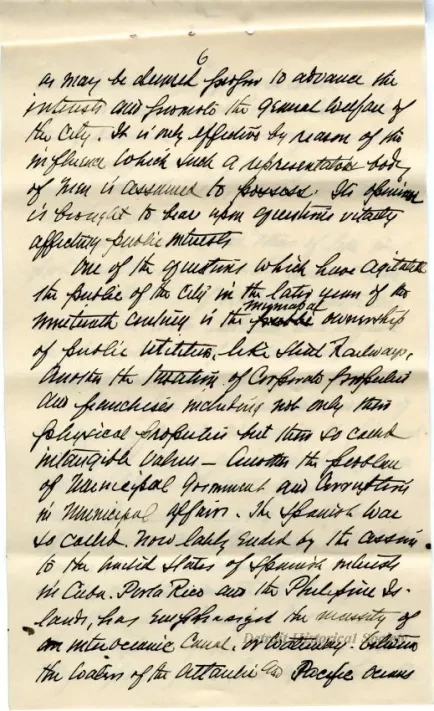 6
as may be deemed proper to advance the
interests and promote the general welfare of
the City. It is only effective by reason of the
influence which such a representative body
of men is assumed to possess. Its opinion
is brought to bear upon questions vitally
affecting public interests
One of the questions which have agitated
the public of the City in the later years of the
nineteenth century is the municipal ownership
of public utilities, like Street Railways,
Another the taxation of Corporate properties
and franchises including not only their
physical properties but their so called
intangible values — Another the problem
of Municipal Government and Corruption
in Municipal affairs. The Spanish War
so called. Now lately ended by the
to the United States of Spanish interests
in Cuba. Porto Rico and the Philipine Is-
lands, has emphasized the necessity of
an interoceanic Canal, or waterway. between
the waters of the Atlantic and Pacific oceans
Detroit Historical Society